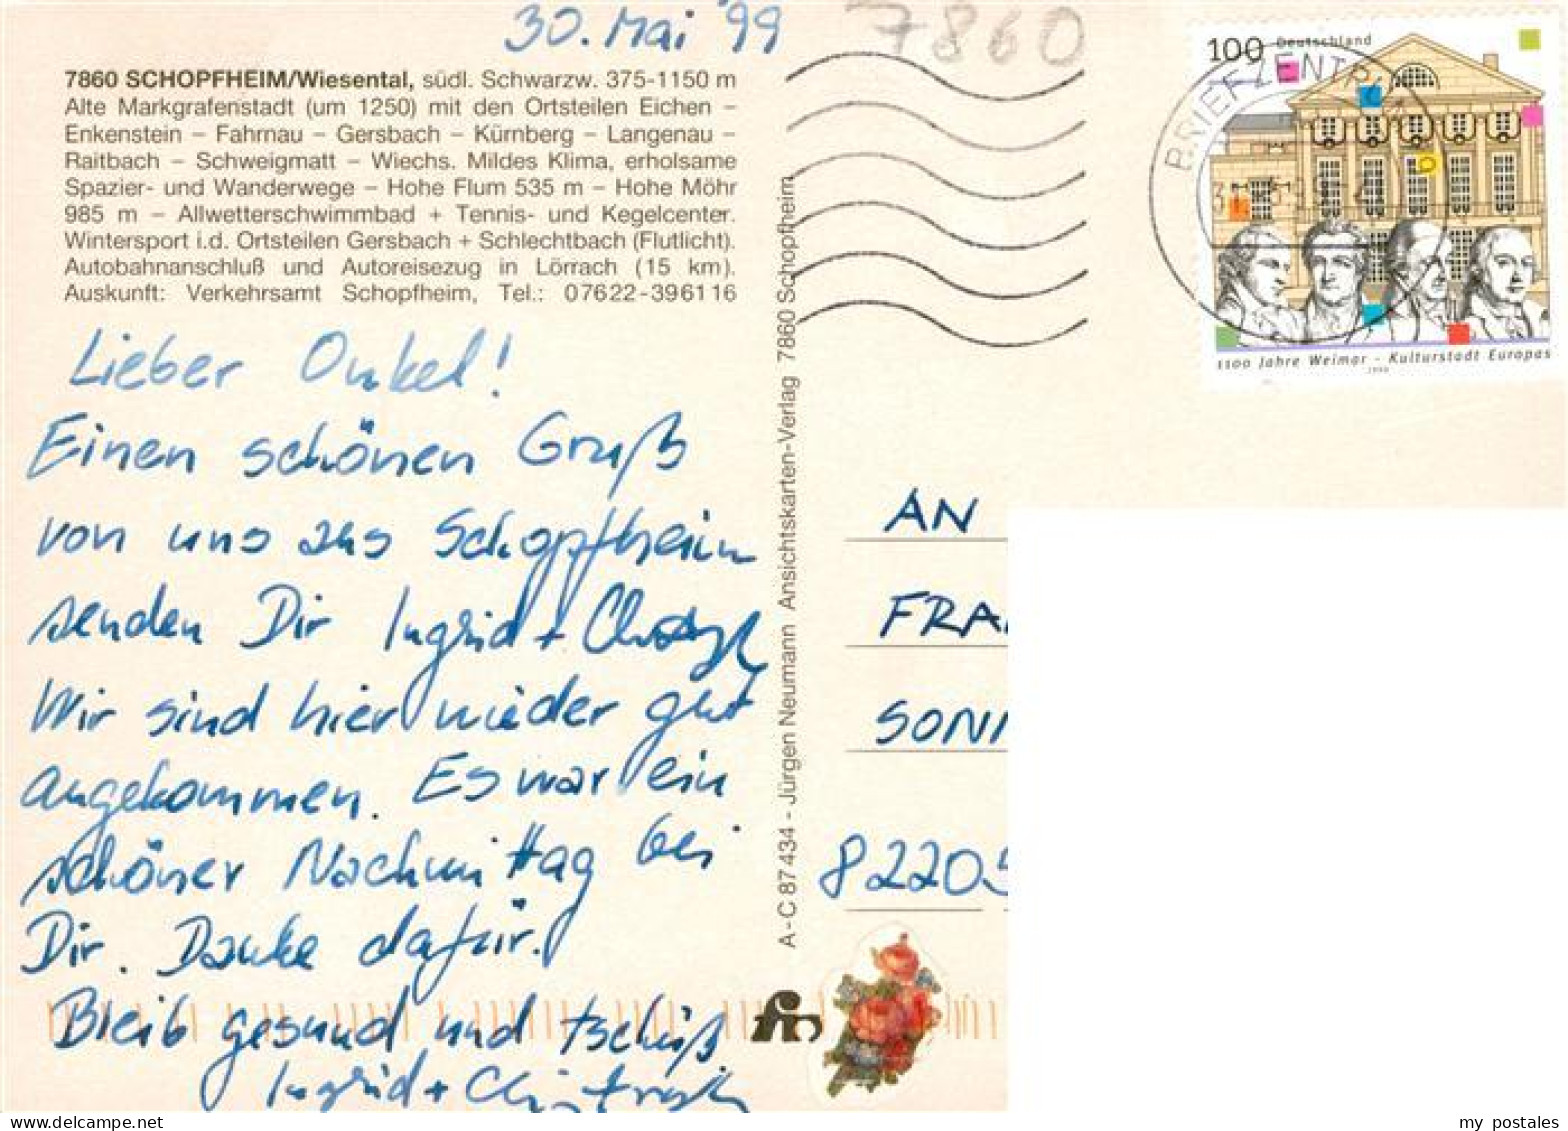 30. Mai '99
7860
7860 SCHOPFHEIM/Wiesental, südl. Schwarzw. 375-1150 m
Alte Markgrafenstadt (um 1250) mit den Ortsteilen Eichen –
Enkenstein – Fahrnau – Gersbach – Kürnberg – Langenau –
Raitbach – Schweigmatt – Wiechs. Mildes Klima, erholsame
Spazier- und Wanderwege – Hohe Flum 535 m – Hohe Möhr
985 m – Allwetterschwimmbad + Tennis- und Kegelcenter.
Wintersport i.d. Ortsteilen Gersbach + Schlechtbach (Flutlicht).
Autobahnanschluß und Autoreisezug in Lörrach (15 km).
Auskunft: Verkehrsamt Schopfheim, Tel.: 07622-396116
Lieber Onkel!
Einen schönen Gruß
von uns aus Schopfheim
senden Dir Ingrid +
Wir sind hier wieder gut
angekommen. Es war ein
schöner Nachmittag bei
Dir. Danke dafür.
Bleib gesund und tschüß
Ingrid +
A-C 87 434 - Jürgen Neumann Ansichtskarten-Verlag 7860 Schopfheim
100 Deutschland
BRIEFZENTRUM
1100 Jahre Weimar - Kulturstadt Europas
1999
AN
FRA
SONN
82205
fm
my postales